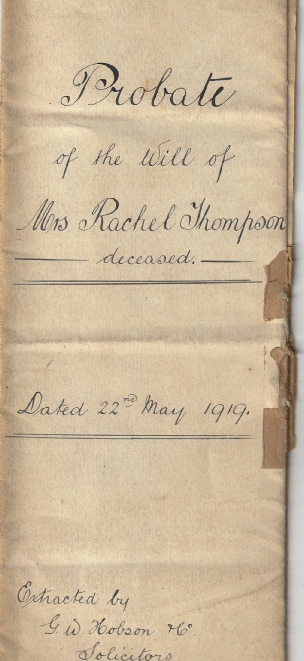 Probate
of the Will of
Mrs Rachel Thompson
deceased.
Dated 22nd May 1919.
Extracted by
G. W. Hobson & Co
Solicitors